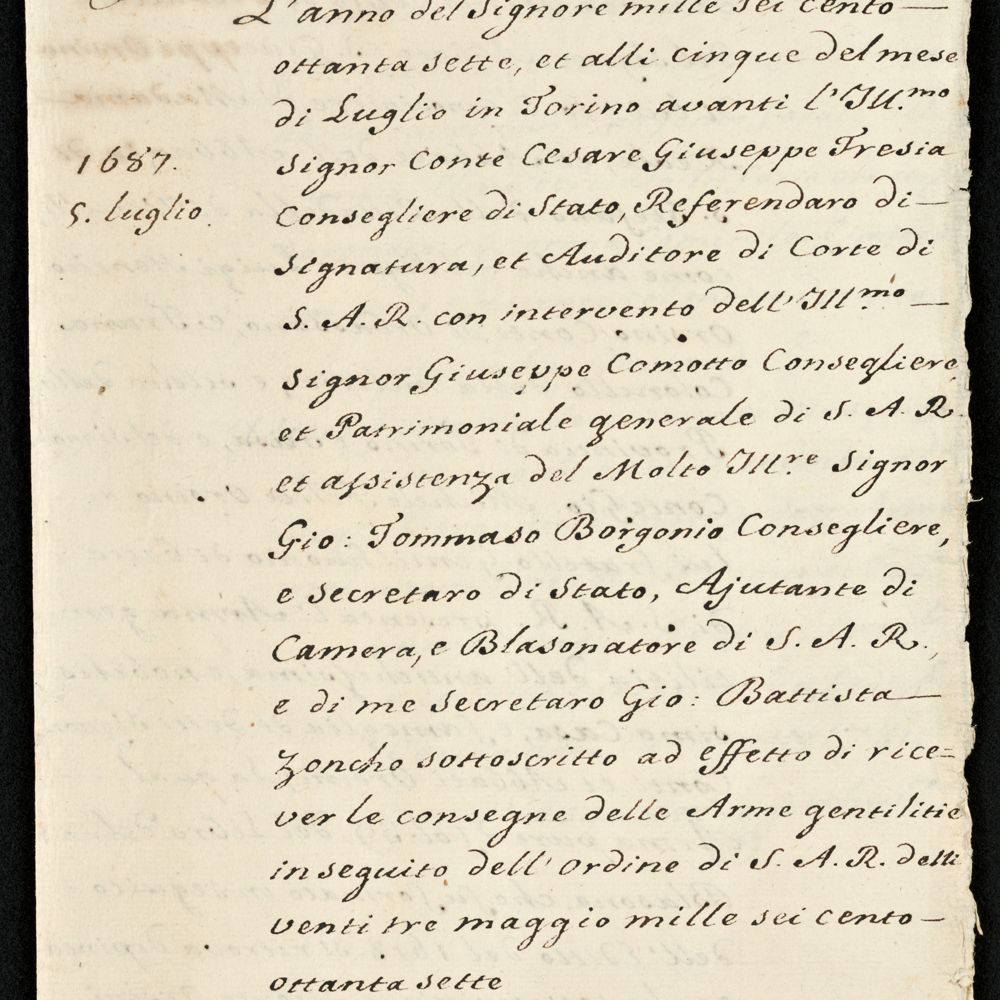 L'anno del Signore mille sei cento —
ottanta sette, et alli cinque del mese
di Luglio in Torino avanti l'Ill.mo
1687.
5. luglio
Signor Conte Cesare Giuseppe Fresia
Consegliere di Stato, Referendaro di —
Signatura, et Auditore di Corte di
S. A. R. con intervento dell'Illmo —
Signor Giuseppe Comotto Consegliere
et Patrimoniale generale di S. A. R.
et assistenza del Molto Ill.re Signor
Gio: Tommaso Borgonio Consegliere,
e Secretaro di Stato, Ajutante di
Camera, e Blasonatore di S. A. R.,
e di me Secretaro Gio: Battista —
Zoncho sottoscritto ad effetto di rice=
ver le consegne delle Arme gentilitie
in seguito dell'ordine di S. A. R. delli
venti tre maggio mille sei cento —
ottanta sette